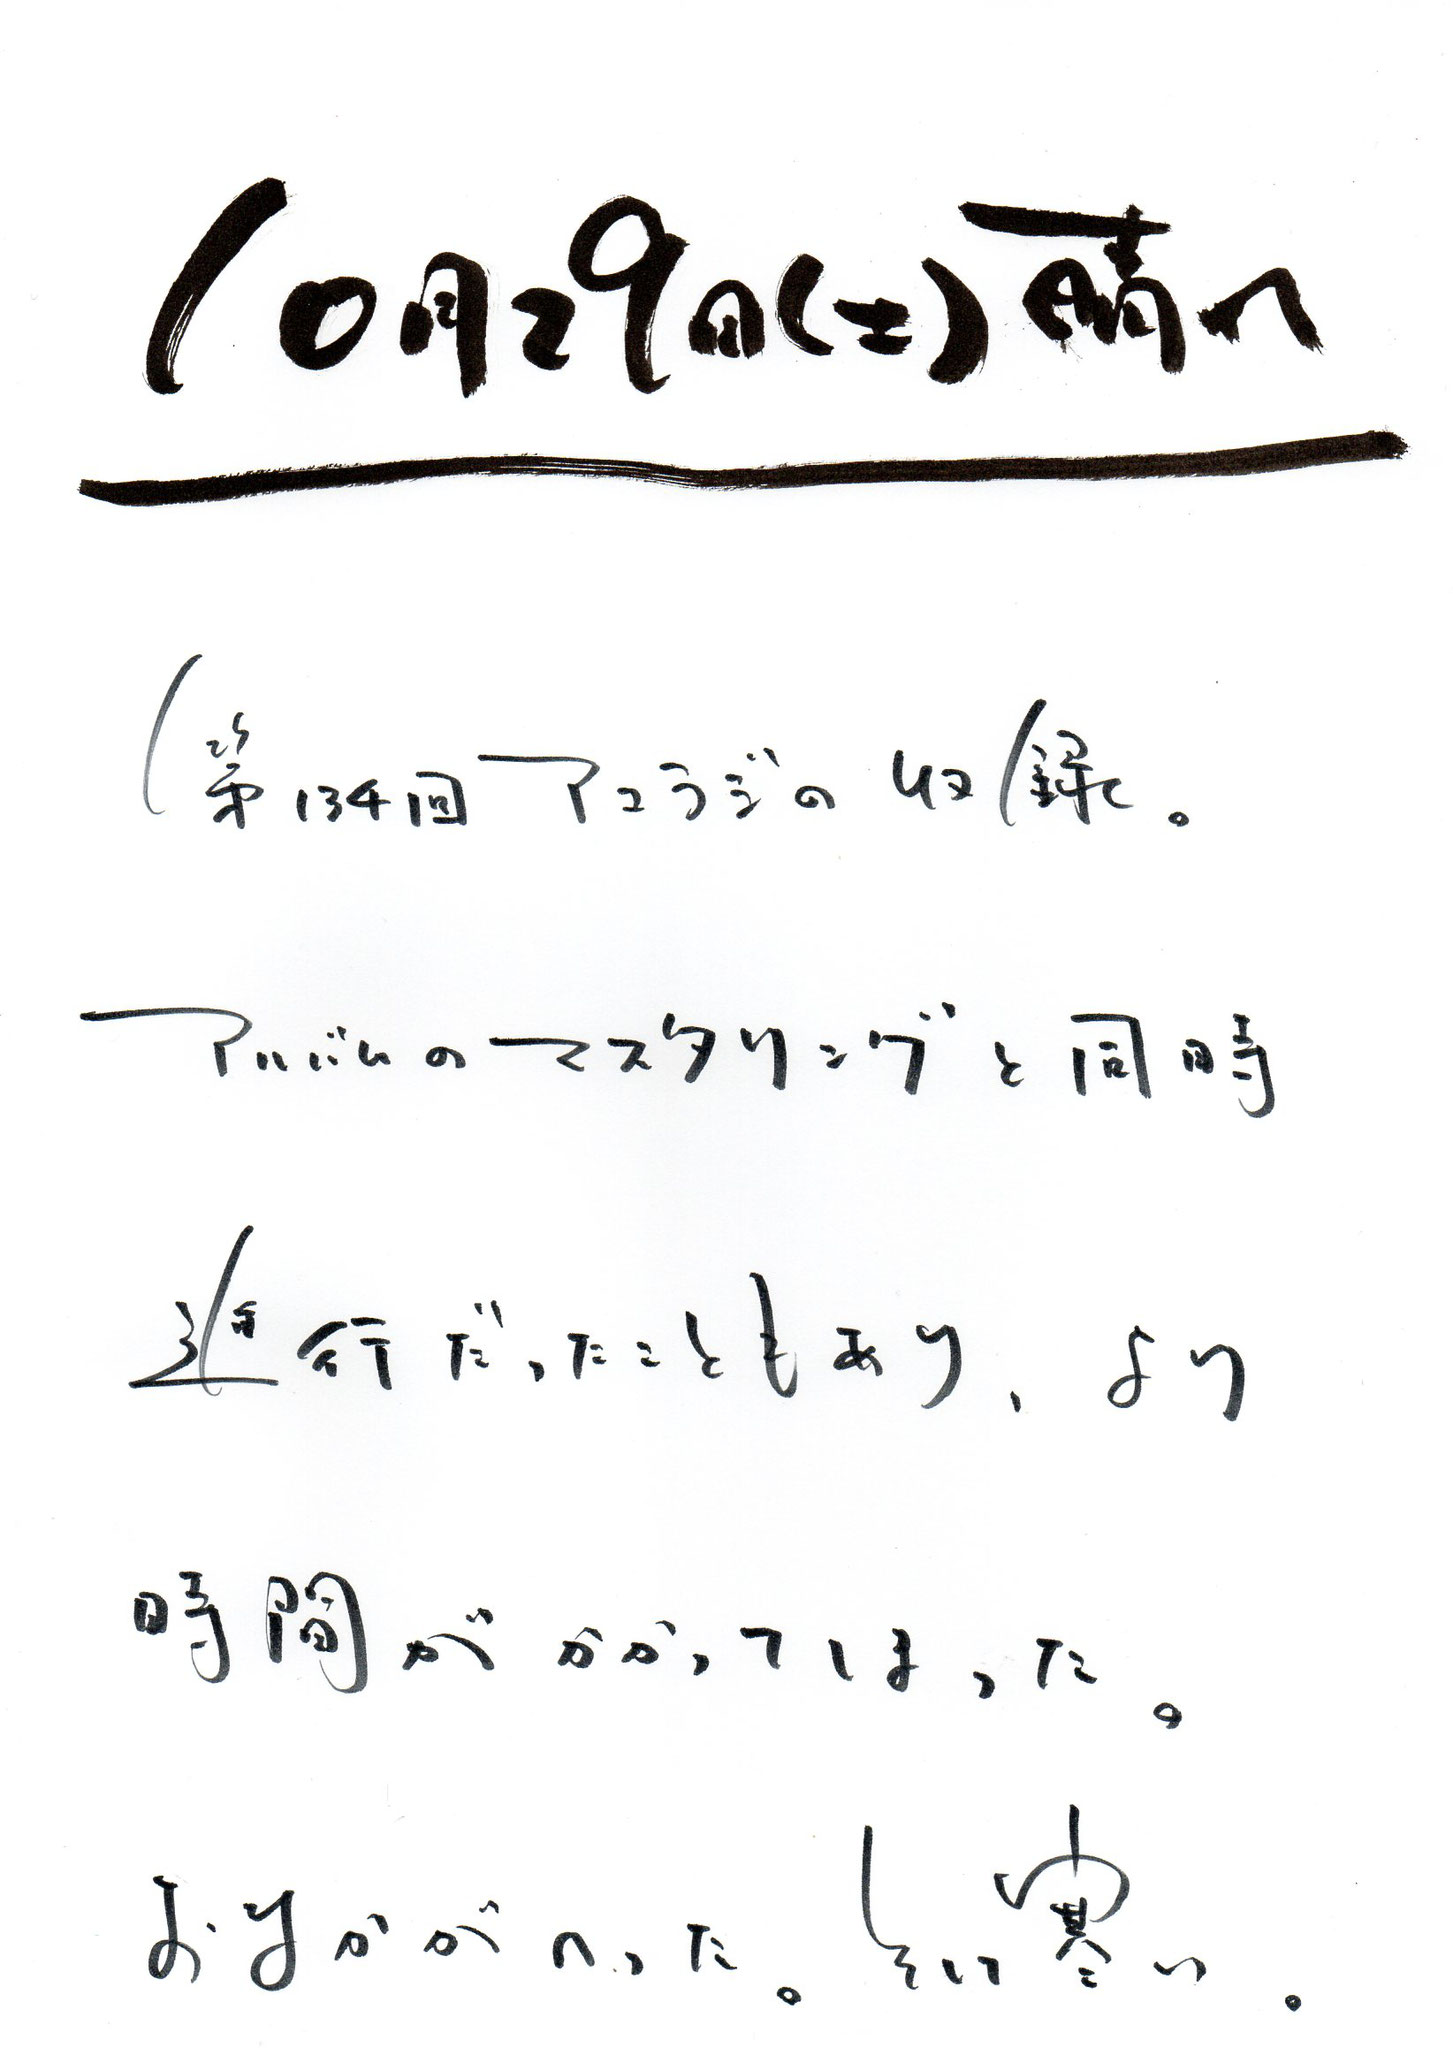 10月29日(土)晴れ
第134回アコラジの収録。
アルバムのマスタリングと同時
進行だったこともあり、より
時間がかかってしまった。
おなかがへった。そして寒い。